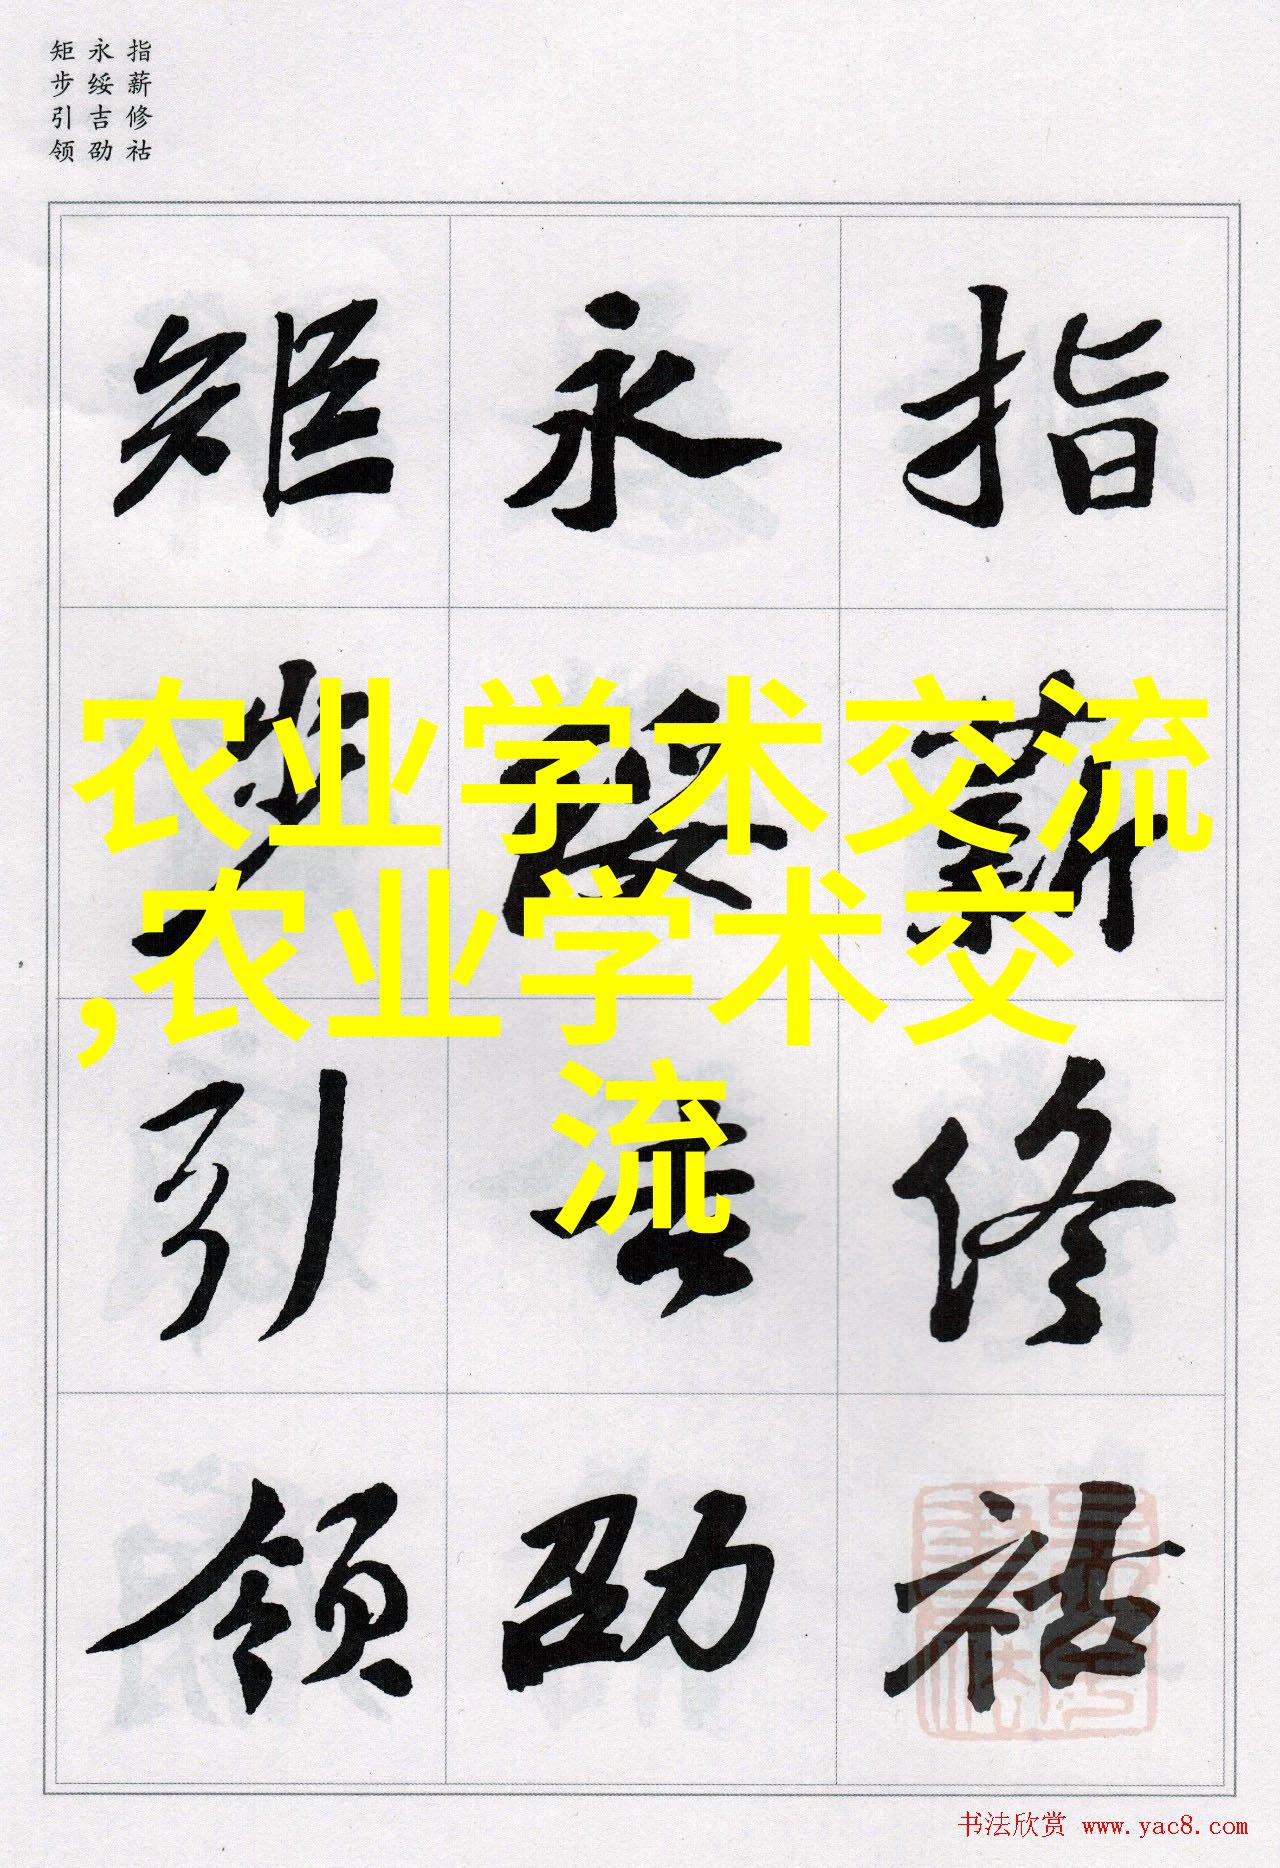 指薪修祜
永绥吉劭
矩步引领
指薪修祜
永绥吉劭
矩步引领
农业学术交流
,农业学术交
流
书法欣赏 www.yac8.com